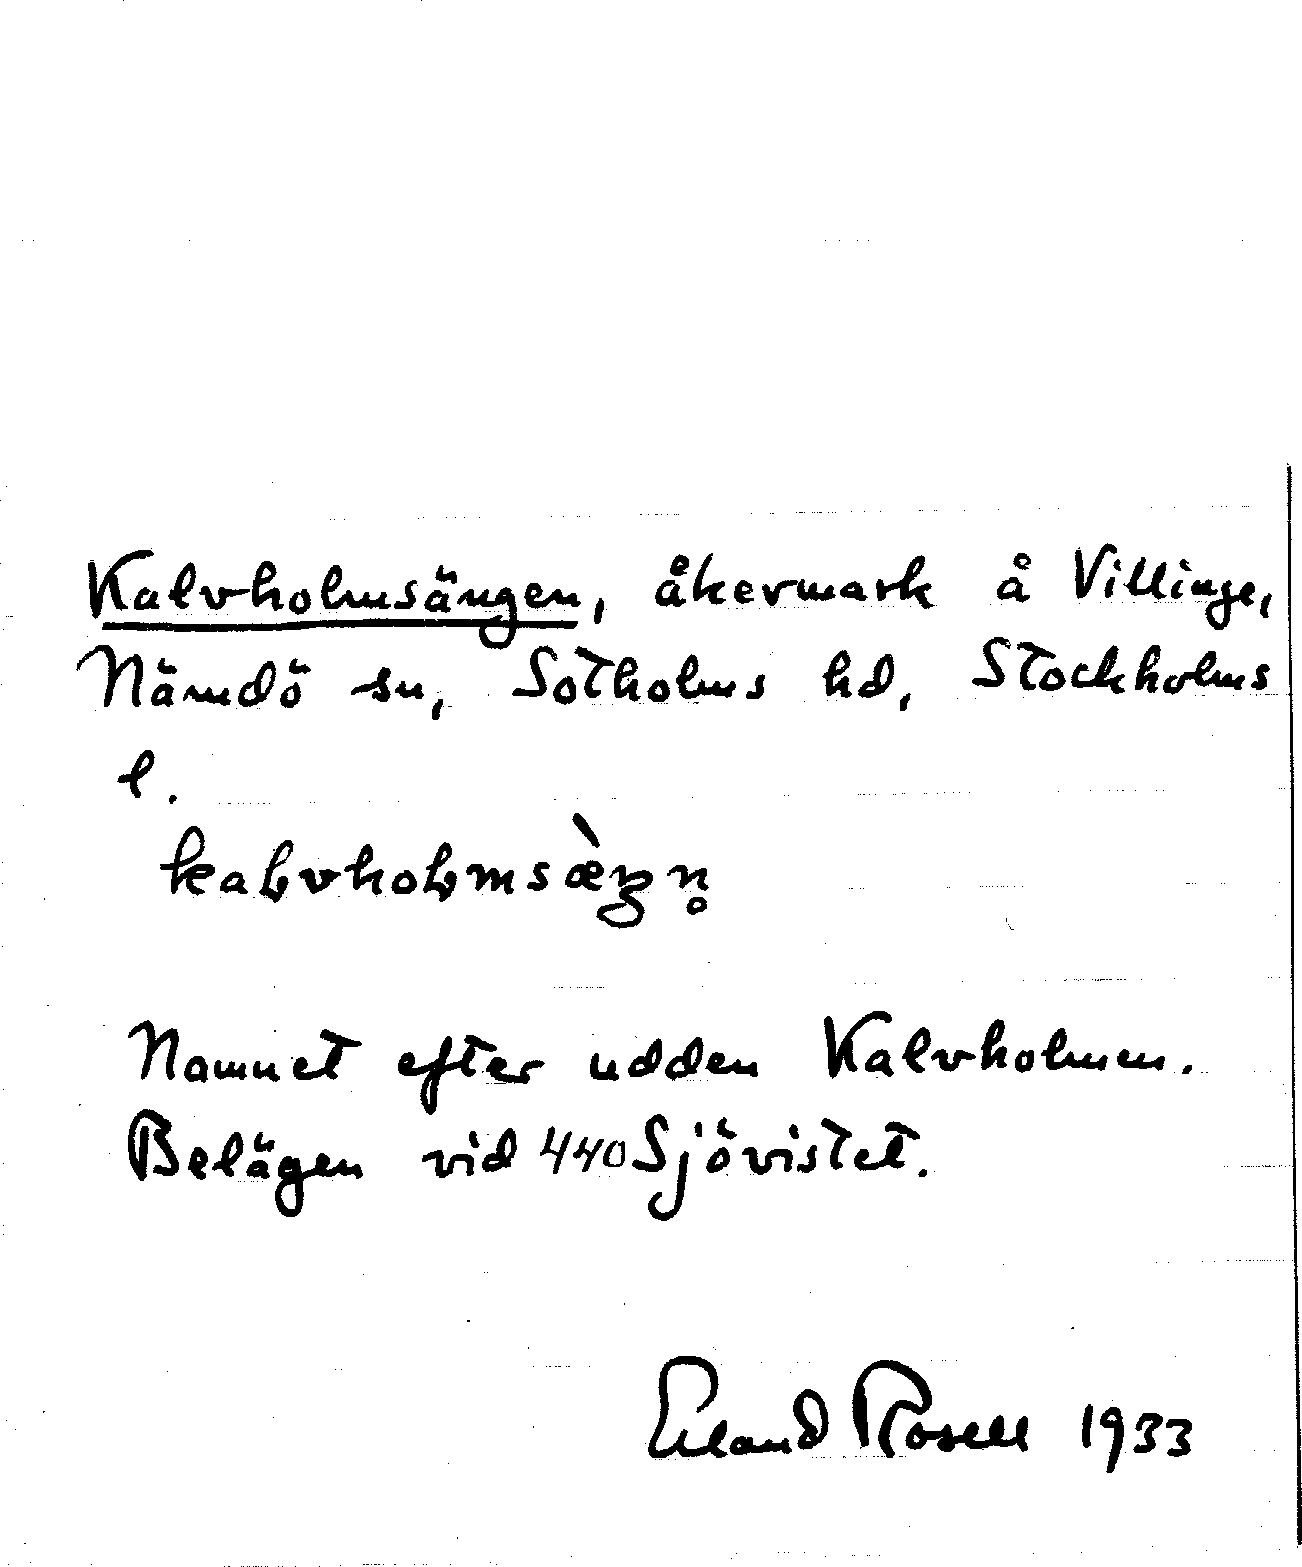 Kalvholmsängen, åkermark å Villinge,
Nämdö sn, Sotholms hd, Stockholms
l.
kaɽvhoɽmsæ̀ŋn̥
Namnet efter udden Kalvholmen.
Belägen vid 440 Sjövistet.
Erland Rosell 1933